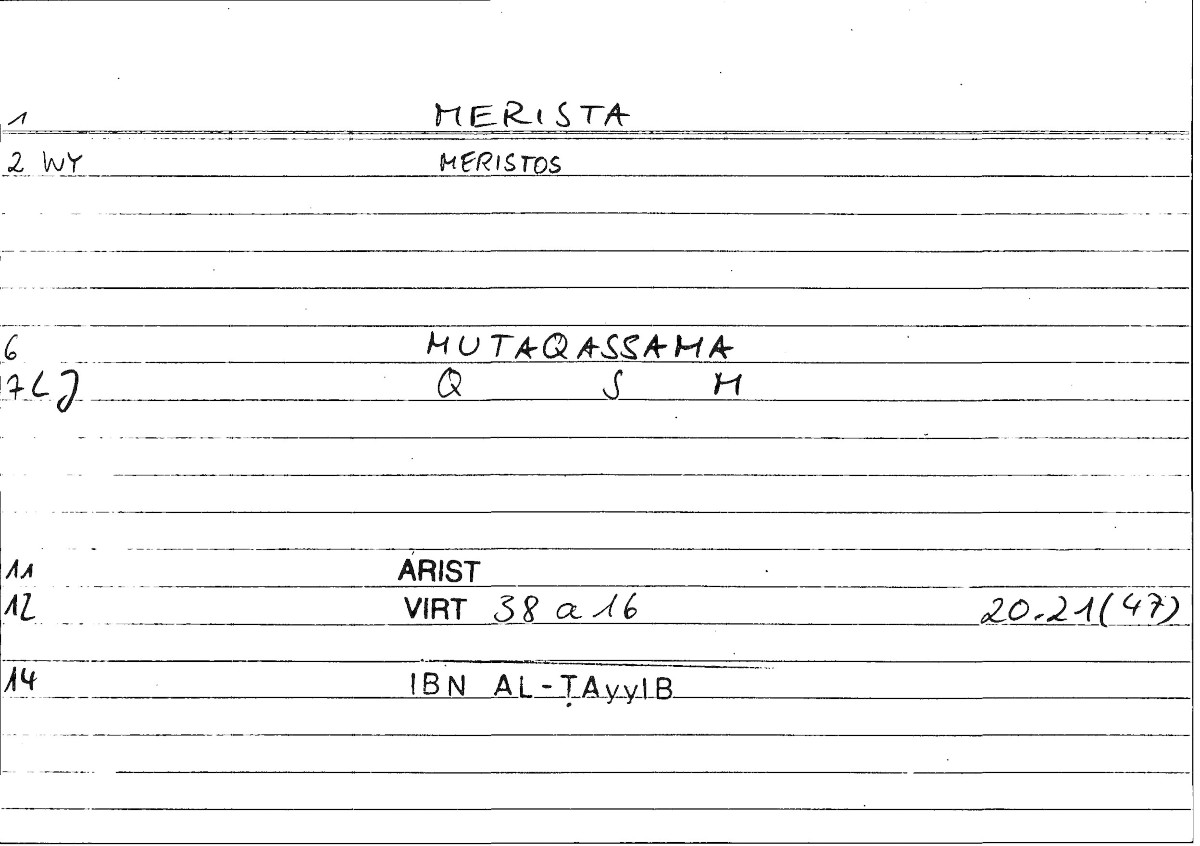 1 MERISTA
2 WY MERISTOS
6 MUTAQASSAMA
7 LJ Q S M
11 ARIST
12 VIRT 38 a 16 20.21(47)
14 IBN AL-ṬAyyIB